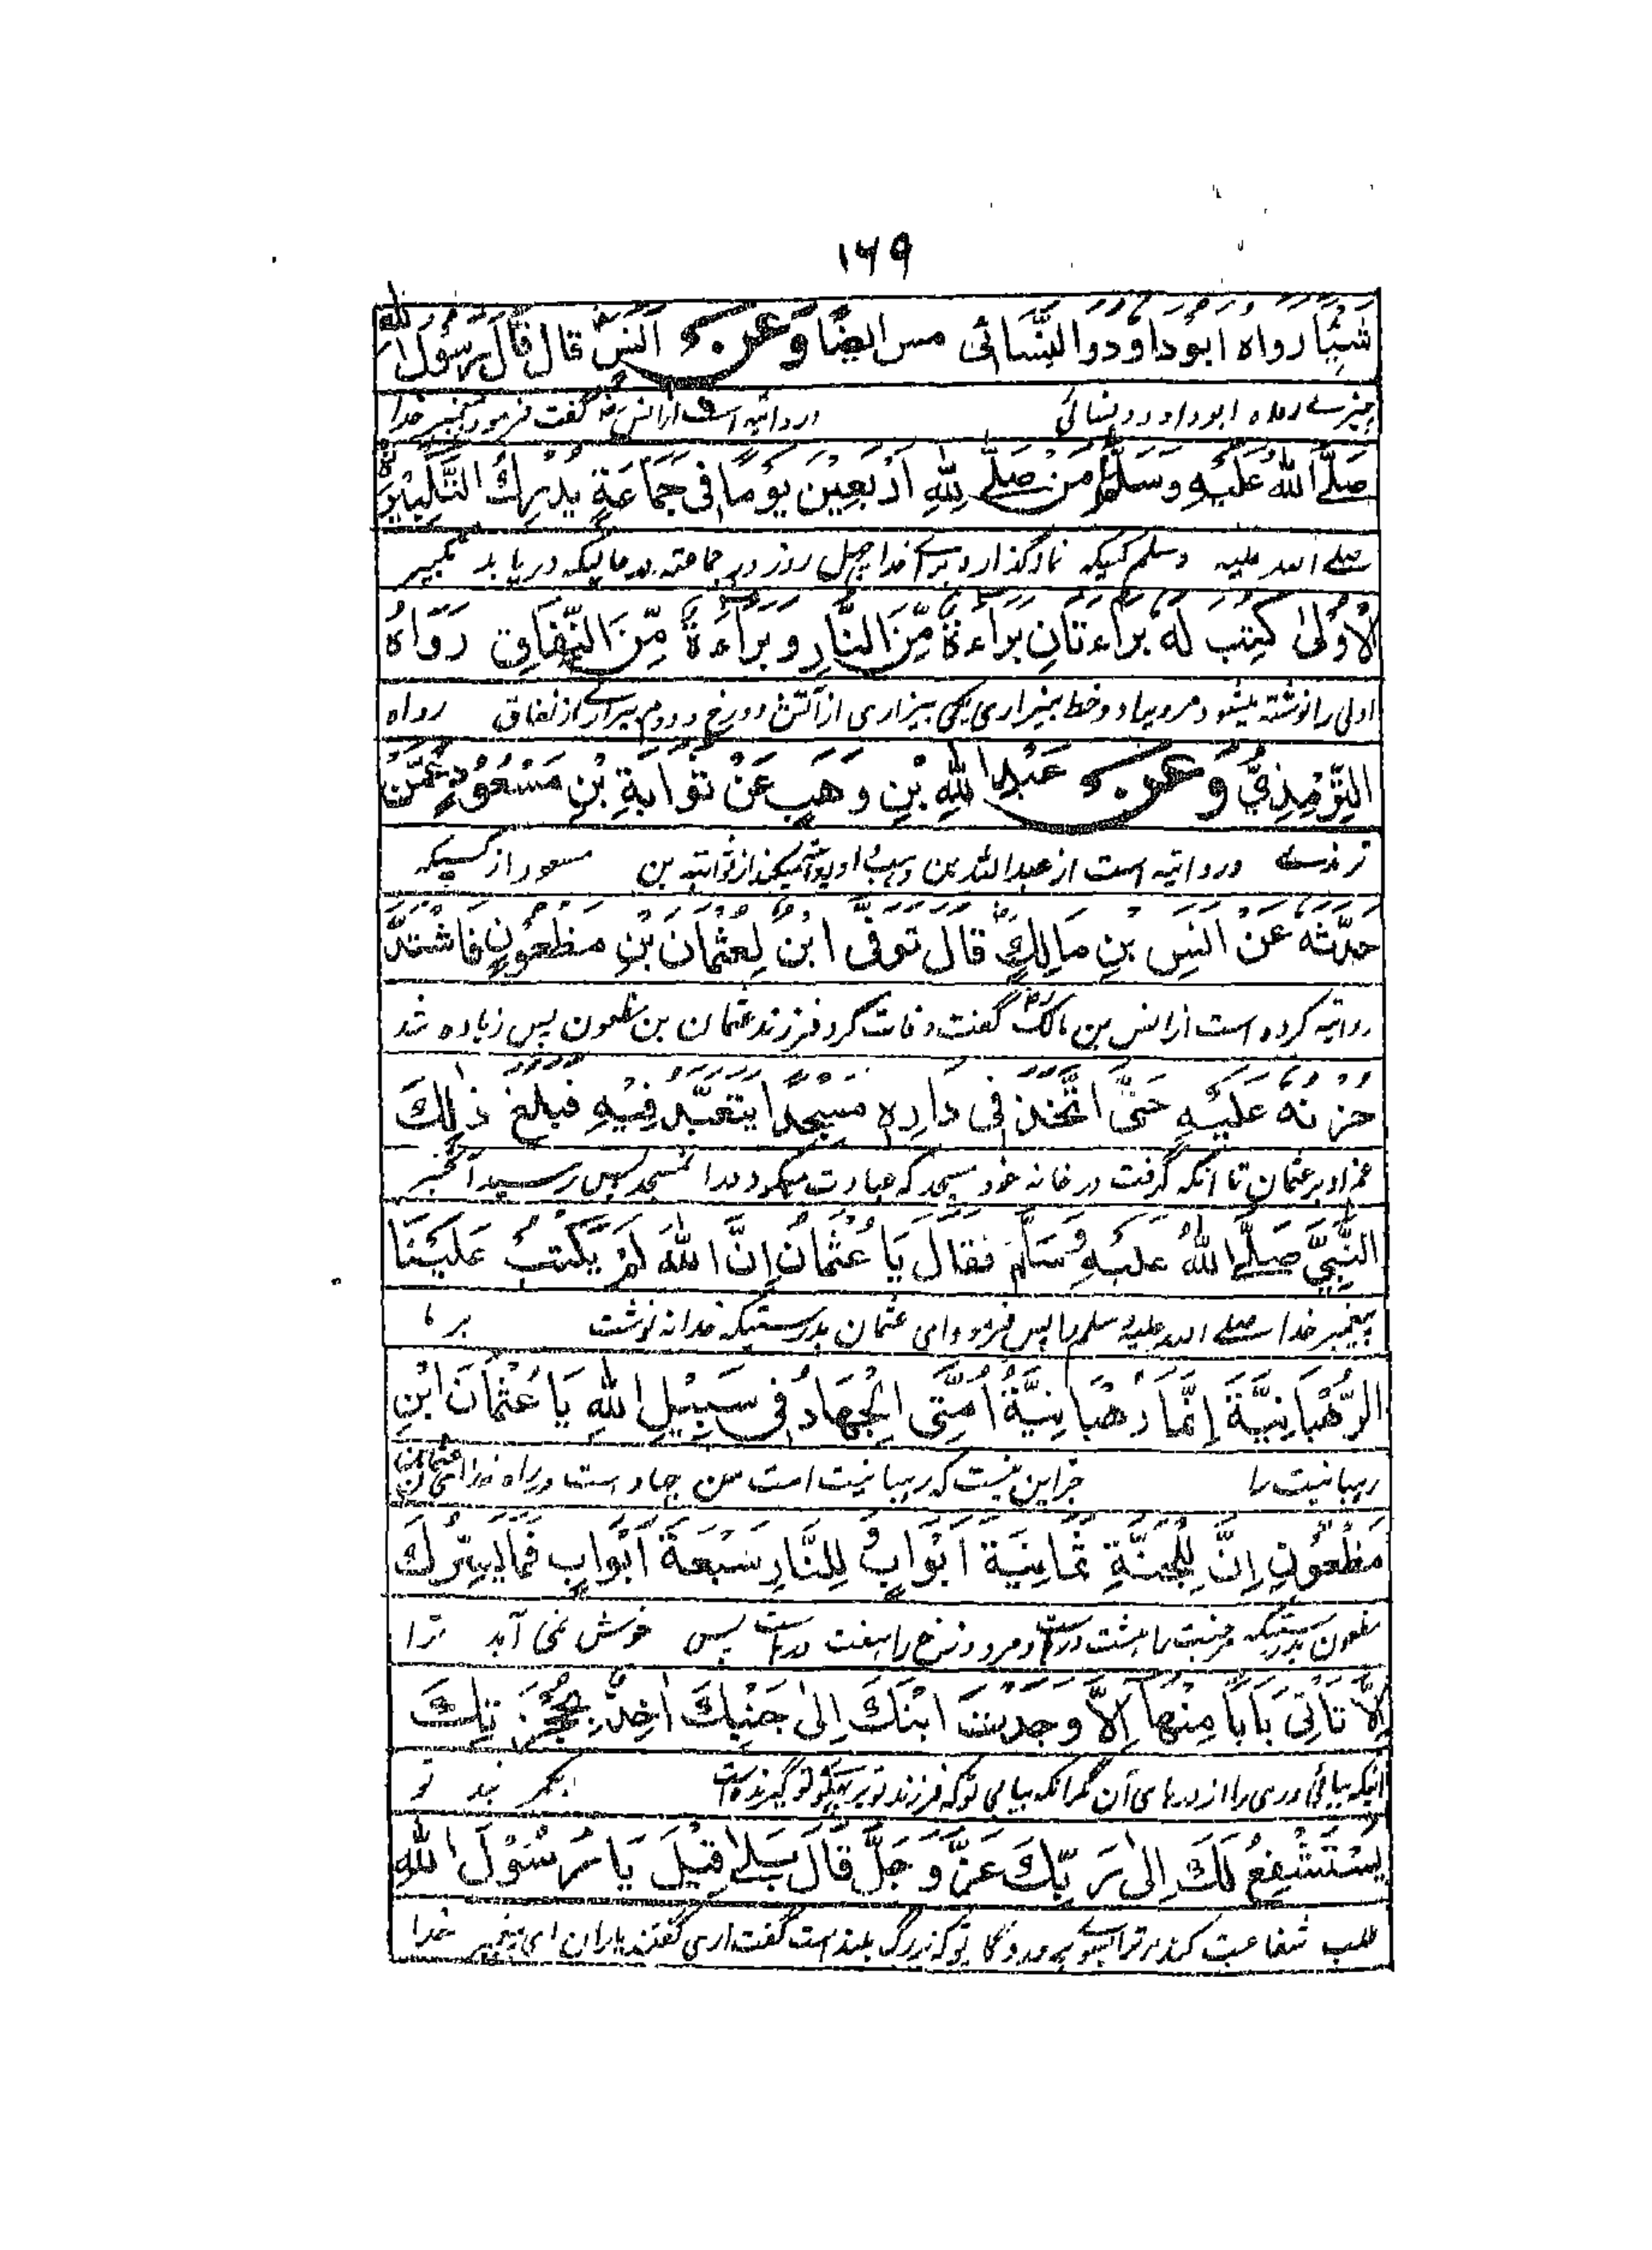 ۱۶۹
شَيْئًا رواه ابوداود والنسائی مس ایضا وَعَنْ اَنَسٍ قال قَالَ رَسُوْلُ اللّٰهِ
چیزے رواه ابوداود ونسائی وروایتہ است از انس رض گفت فرمود پیغمبر خدا
صَلَّے اللّٰهُ عَلَيْهِ وَسَلَّمَ مَنْ صَلّٰے لِلّٰهِ اَرْبَعِيْنَ يَوْمًا فِی جَمَاعَةٍ يُدْرِكُ التَّكْبِيْرَةَ
صلے اللہ علیہ وسلم کسیکہ نماز گذارد برائے خدا چہل روز در جماعتہ در حالیکہ دریابد تکبیر
الْاُوْلٰى كُتِبَ لَهُ بَرَاءَتَانِ بَرَاءَةٌ مِّنَ النَّارِ وَبَرَاءَةٌ مِّنَ النِّفَاقِ رَوَاهُ
اولی را نوشتہ میشود مر ویرا دو خط بیزاری یکی بیزاری از آتش دوزخ و دوم بیزاری از نفاق رواہ
التِّرْمِذِیُّ وَعَنْ عَبْدِ اللّٰهِ بْنِ وَهَبٍ عَنْ ثَوَابَةَ بْنِ مَسْعُوْدٍ عَمَّنْ
ترمذے وروایتہ است از عبداللہ بن وہب از ثوابتہ بن مسعود از کسیکہ
حَدَّثَهُ عَنْ اَنَسِ بْنِ مَالِكٍ قَالَ تُوُفِّیَ ابْنٌ لِعُثْمَانَ بْنِ مَظْعُوْنٍ فَاشْتَدَّ
روایتہ کردہ است از انس بن مالک رض گفت وفات کرد فرزند عثمان بن مظعون پس زیادہ شد
حُزْنُهُ عَلَيْهِ حَتّٰی اتَّخَذَ فِی دَارِهٖ مَسْجِدًا يَتَعَبَّدُ فِيْهِ فَبَلَغَ ذٰلِكَ
غم او بر عثمان تا آنکہ گرفت در خانہ خود مسجد کہ عبادت میکرد در آن مسجد پس رسید آن خبر
النَّبِیَّ صَلَّے اللّٰهُ عَلَيْهِ وَسَلَّمَ فَقَالَ يَا عُثْمَانُ اِنَّ اللّٰهَ لَمْ يَكْتُبْ عَلَيْنَا
پیغمبر خدا صلے اللہ علیہ وسلم را پس فرمود ای عثمان بدرستیکہ خدا نہ نوشت بر ما
الرَّهْبَانِيَّةَ اِنَّمَا رَهْبَانِيَّةُ اُمَّتِی الْجِهَادُ فِی سَبِيْلِ اللّٰهِ يَا عُثْمَانَ ابْنِ
رہبانیت را جز این نیست کہ رہبانیت امت من جہاد است در راہ خدا ای عثمان بن
مَظْعُوْنٍ اِنَّ لِلْجَنَّةِ ثَمَانِيَةَ اَبْوَابٍ لِلنَّارِ سَبْعَةَ اَبْوَابٍ فَمَا يَسُرُّكَ
مظعون بدرستیکہ مر جنت را ہشت در است و مر دوزخ را ہفت در است پس خوش نمی آید ترا
اِلَّا تَاْتِیَ بَابًا مِنْهَا اِلَّا وَجَدْتَ ابْنَكَ اِلٰى جَنْبِكَ اٰخِذٌ بِحُجْزَتِكَ
اینکہ بیائی دری را از درہای آن مگر آنکہ بیابی تو کہ فرزند تو بر پہلوی تو گیرندہ است بکمر بند تو
يَسْتَشْفِعُ لَكَ اِلٰى رَبِّكَ عَزَّ وَجَلَّ قَالَ بَلٰے قِيْلَ يَا رَسُوْلَ اللّٰهِ
طلب شفاعت کند مر ترا بسوے پروردگار تو کہ بزرگ بلند است گفت آری گفتند یاران ای پیغمبر خدا